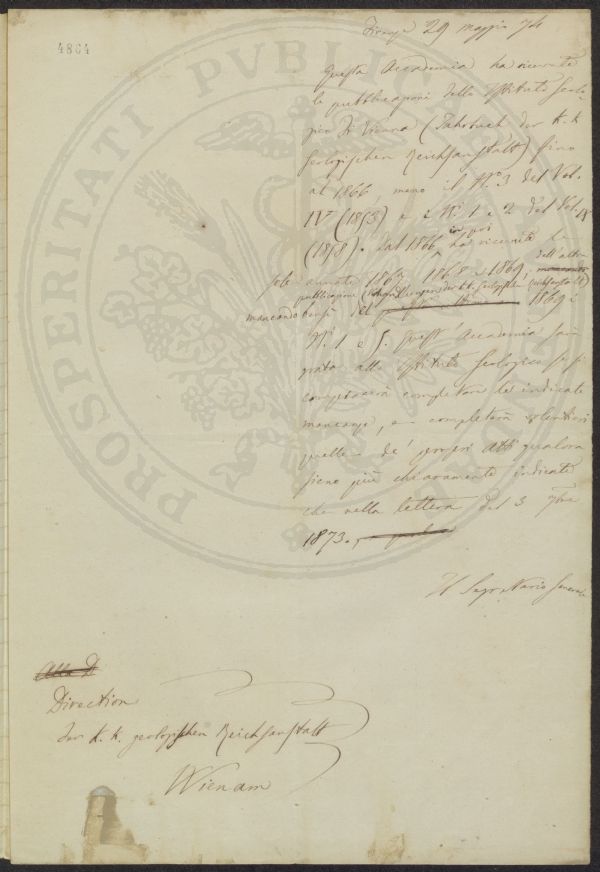 4864
PROSPERITATI PVBLICAE
Firenze 29 maggio 74
Questa Accademia ha ricevute
le pubblicazioni dello Istituto Geolo-
gico di Vienna (Jahrbuch der K. K.
Geologischen Reichsanstalt) fino
al 1866, meno il N.° 3 del Vol.
IV (1853) e i N.i 1 e 2 del Vol. IX
(1858). Dal 1866 in poi ha ricevuto la
sole annate 1867 1868 e 1869, mancando dell'altra
pubblicazione (Verhandlungen der k. k. geologischen Reichsanstalt)
mancando bensì del 1869 i
N.i 1 e 5. Quest'Accademia sarà
grata allo Istituto Geologico se si
compiacerà completare le indicate
mancanze, e completerà volentieri
quelle de' propri Atti qualora
sieno più chiaramente indicate
che nella lettera del 3 9bre
1873.
Il Segretario Generale
Alla D
Direction
der K. K. geologischen Reichsanstalt
Wien am